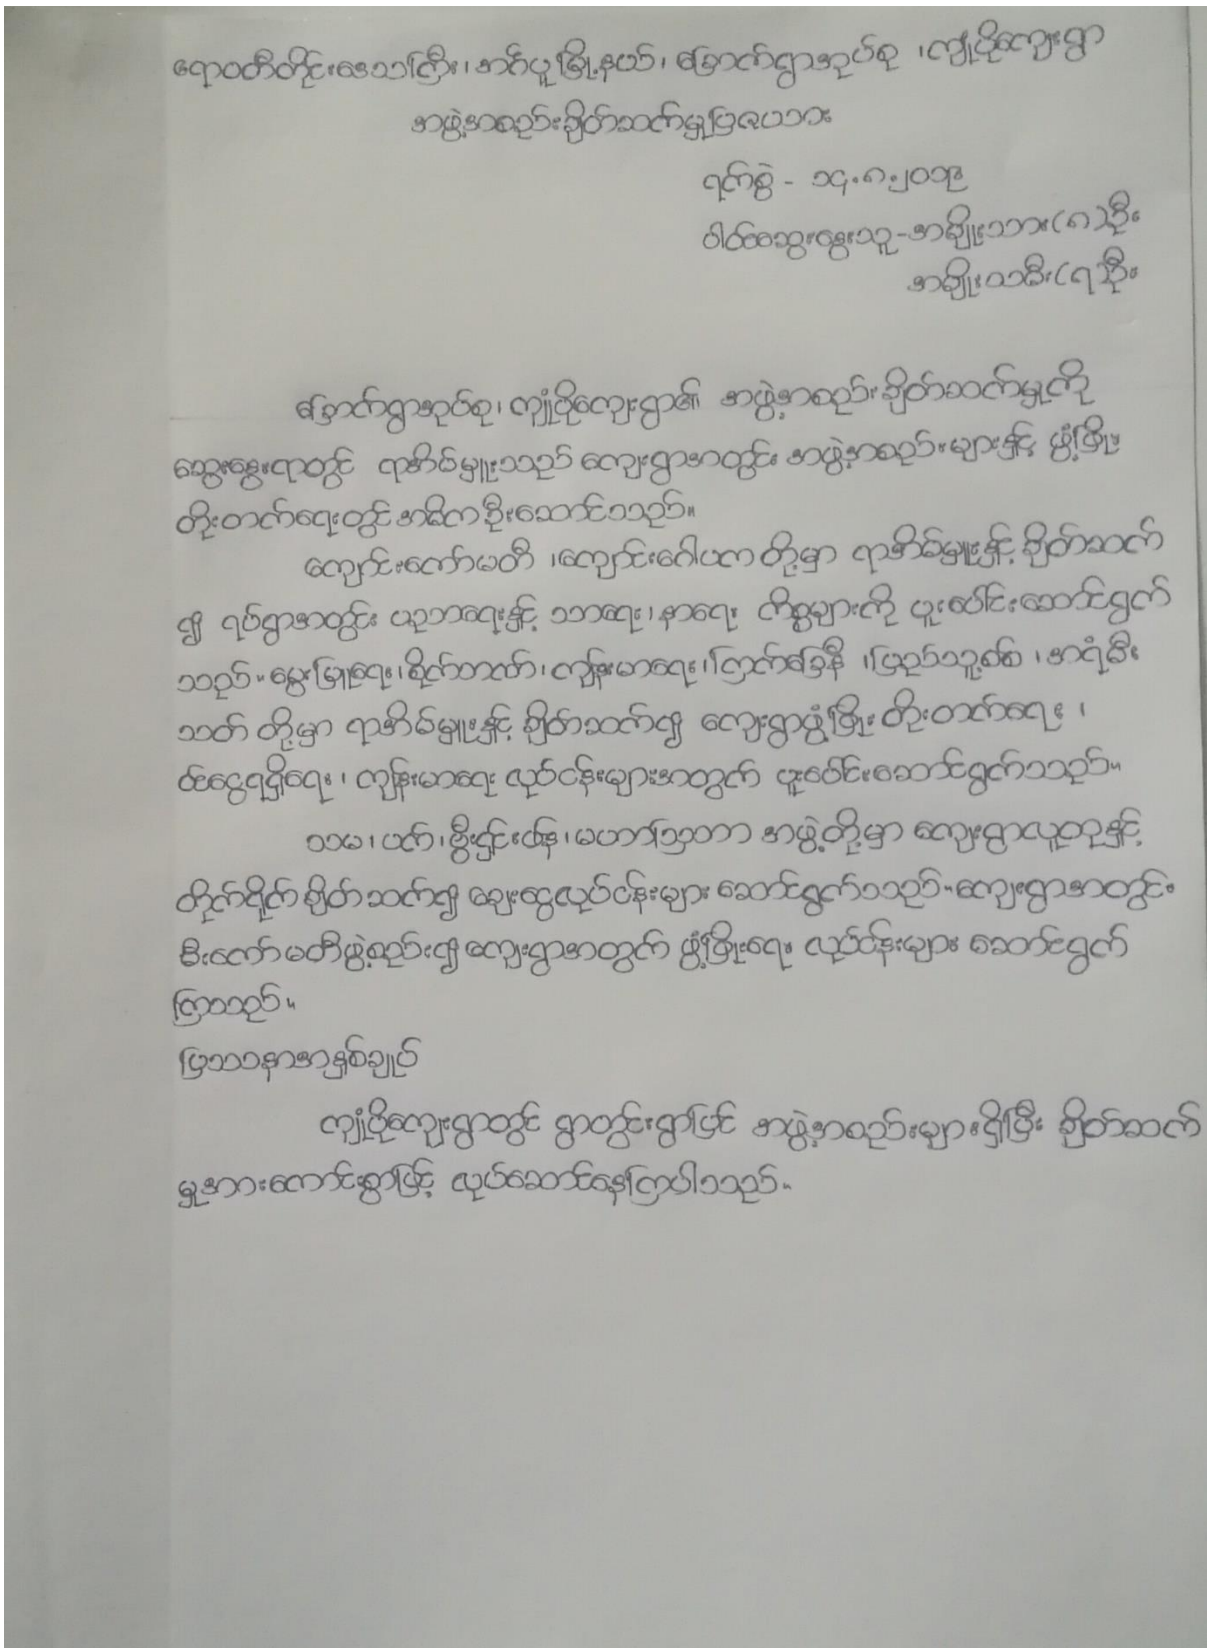 ရောဝတီတိုင်းဒေသကြီး၊ အင်္ဂပူမြို့နယ်၊ ခြောက်ရွာအုပ်စု ၊ကျုံပိုကျေးရွာ
အဖွဲ့အစည်းချိတ်ဆက်မှုပြဇယား
ရက်စွဲ - ၁၄.၈.၂၀၁၉
ပါဝင်ဆွေးနွေးသူ-အမျိုးသား(၈)ဦး
အမျိုးသမီး(၇)ဦး
ခြောက်ရွာအုပ်စု၊ ကျုံပိုကျေးရွာ၏ အဖွဲ့အစည်းချိတ်ဆက်မှုကို
ဆွေးနွေးရာတွင် ရာအိမ်မှူးသည် ကျေးရွာအတွင်း အဖွဲ့အစည်းများနှင့် ဖွံ့ဖြိုး
တိုးတက်ရေးတွင် အဓိကဦးဆောင်သည်။
ကျောင်းကော်မတီ ၊ကျောင်းဂေါပက တို့မှာ ရာအိမ်မှူးနှင့် ချိတ်ဆက်
၍ ရပ်ရွာအတွင်း ပညာရေးနှင့် သာရေး၊နာရေး ကိစ္စများကို ပူးပေါင်းဆောင်ရွက်
သည်။ မွေးမြူရေး၊ စိုက်ဘဏ်၊ ကျန်းမာရေး၊ ကြက်ခြေနီ ၊ပြည်သူ့စစ် ၊အရံမီး
သတ် တို့မှာ ရာအိမ်မှူးနှင့် ချိတ်ဆက်၍ ကျေးရွာဖွံ့ဖြိုး တိုးတက်ရေး ၊
ဝင်ငွေရရှိရေး ၊ ကျန်းမာရေး လုပ်ငန်းများအတွက် ပူးပေါင်းဆောင်ရွက်သည်။
သမ၊ ပတ်၊ ဗွီးရှင်းဖန်၊ မဟာဩဘာ အဖွဲ့တို့မှာ ကျေးရွာလူထုနှင့်
တိုက်ရိုက် ချိတ်ဆက်၍ ချေးငွေလုပ်ငန်းများ ဆောင်ရွက်သည်။ ကျေးရွာအတွင်း
မီးကော်မတီဖွဲ့စည်း၍ ကျေးရွာအတွက် ဖွံ့ဖြိုးရေး လုပ်ငန်းများ ဆောင်ရွက်
ကြသည်။
ပြဿနာအနှစ်ချုပ်
ကျုံပိုကျေးရွာတွင် ရွာတွင်းရွာပြင် အဖွဲ့အစည်းများရှိပြီး ချိတ်ဆက်
မှုအားကောင်းစွာဖြင့် လုပ်ဆောင်နေကြပါသည်။